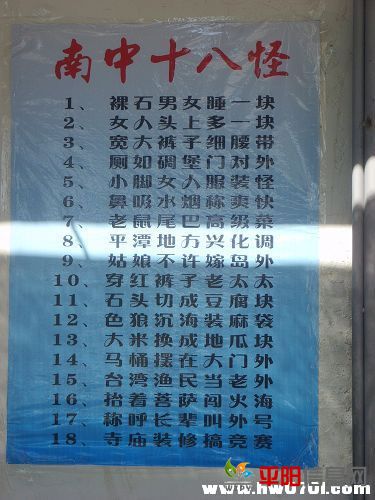 南中十八怪
1、裸石男女睡一块
2、女人头上多一块
3、宽大裤子细腰带
4、厕如碉堡门对外
5、小脚女人服装怪
6、鼻吸水烟称爽快
7、老鼠尾巴高级菜
8、平潭地方兴化调
9、姑娘不许嫁岛外
10、穿红裤子老太太
11、石头切成豆腐块
12、色狼沉海装麻袋
13、大米换成地瓜块
14、马桶摆在大门外
15、台湾渔民当老外
16、抬着菩萨闯火海
17、称呼长辈叫外号
18、寺庙装修搞竞赛
平阳信息网